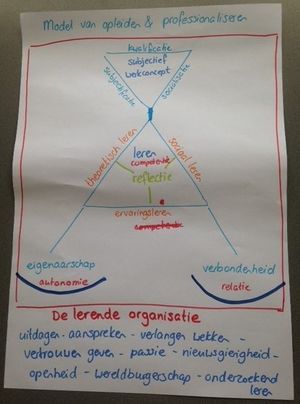 Model van opleiden & professionaliseren
kwalificatie
subjectief
welconcept
subjectificatie
socialisatie
theoretisch leren
sociaal leren
leren
competentie
reflectie
ervaringsleren
competentie
eigenaarschap
autonomie
verbondenheid
relatie
De lerende organisatie
uitdagen - aanspreken - verlangen wekken -
vertrouwen geven - passie - nieuwsgierigheid -
openheid - wereldburgerschap - onderzoekend
leren